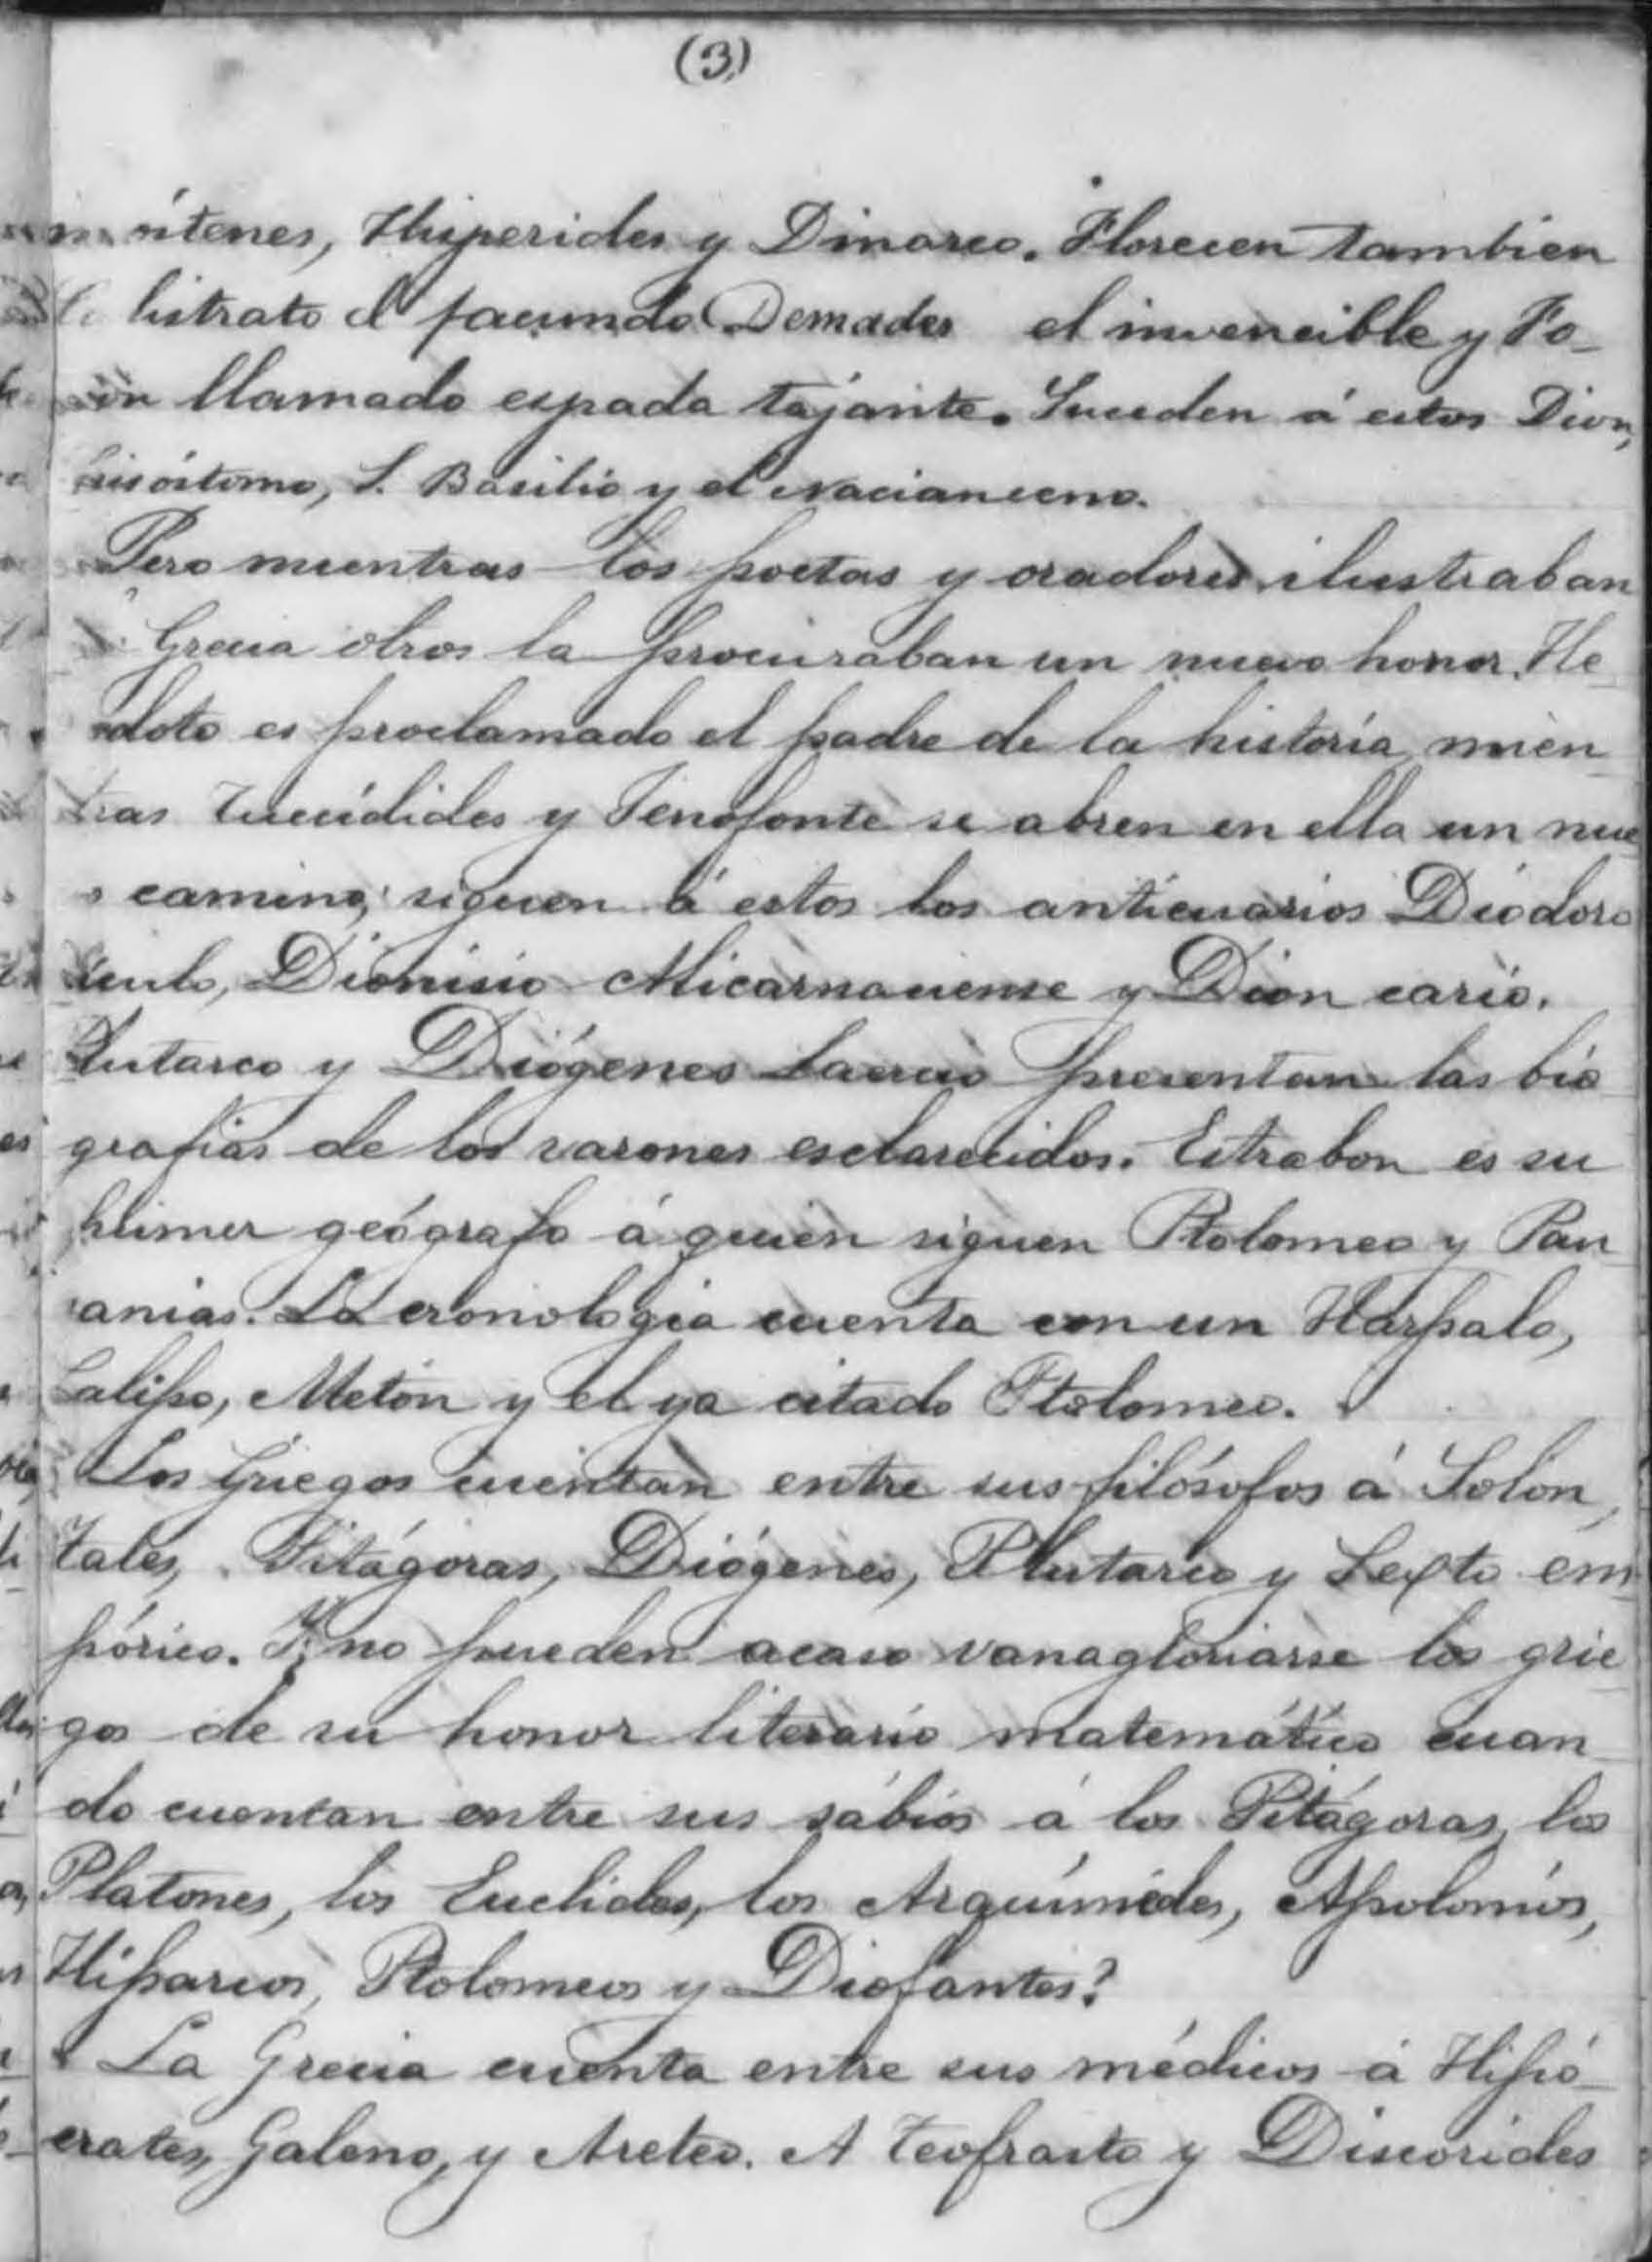 (3)
óstenes, Hiperides y Dinarco. Florecen tambien
listrato el facundo Demades el invencible y Fo_
ión llamado espada tajante. Suceden á estos Dion,
risóstomo, S. Basilio y el Nacianceno.
Pero mientras los poetas y oradores ilustraban
Grecia otros la procuraban un nuevo honor. He_
doto es proclamado el padre de la historía mien_
tras Tucídides y Jenofonte se abren en ella un nue_
camino; siguen á estos los anticuarios Diodoro
ículo, Dionisio Alicarnaciense y Dion cario.
Plutarco y Diógenes Laercio presentan las bio_
grafias de los varones esclarecidos. Estrabon es su
primer geógrafo á quien siguen Ptolomeo y Pau_
anias. La cronologia cuenta con un Harpalo,
Calipo, Metón y el ya citado Ptolomeo.
Los Griegos cuentan entre sus filósofos á Solón,
Tales, Pitágoras, Diógenes, Plutarco y Sexto em_
pórico. Y no pueden acaso vanagloriarse los grie_
gos de su honor literario matemático cuan_
do cuentan entre sus sábios á los Pitágoras, los
Platones, los Euclides, los Arquímides, Apolonios,
Hiparcos, Ptolomeos y Diofantes?
La Grecia cuenta entre sus médicos á Hipó_
crates, Galeno, y Areteo. A Teofrasto y Discorides